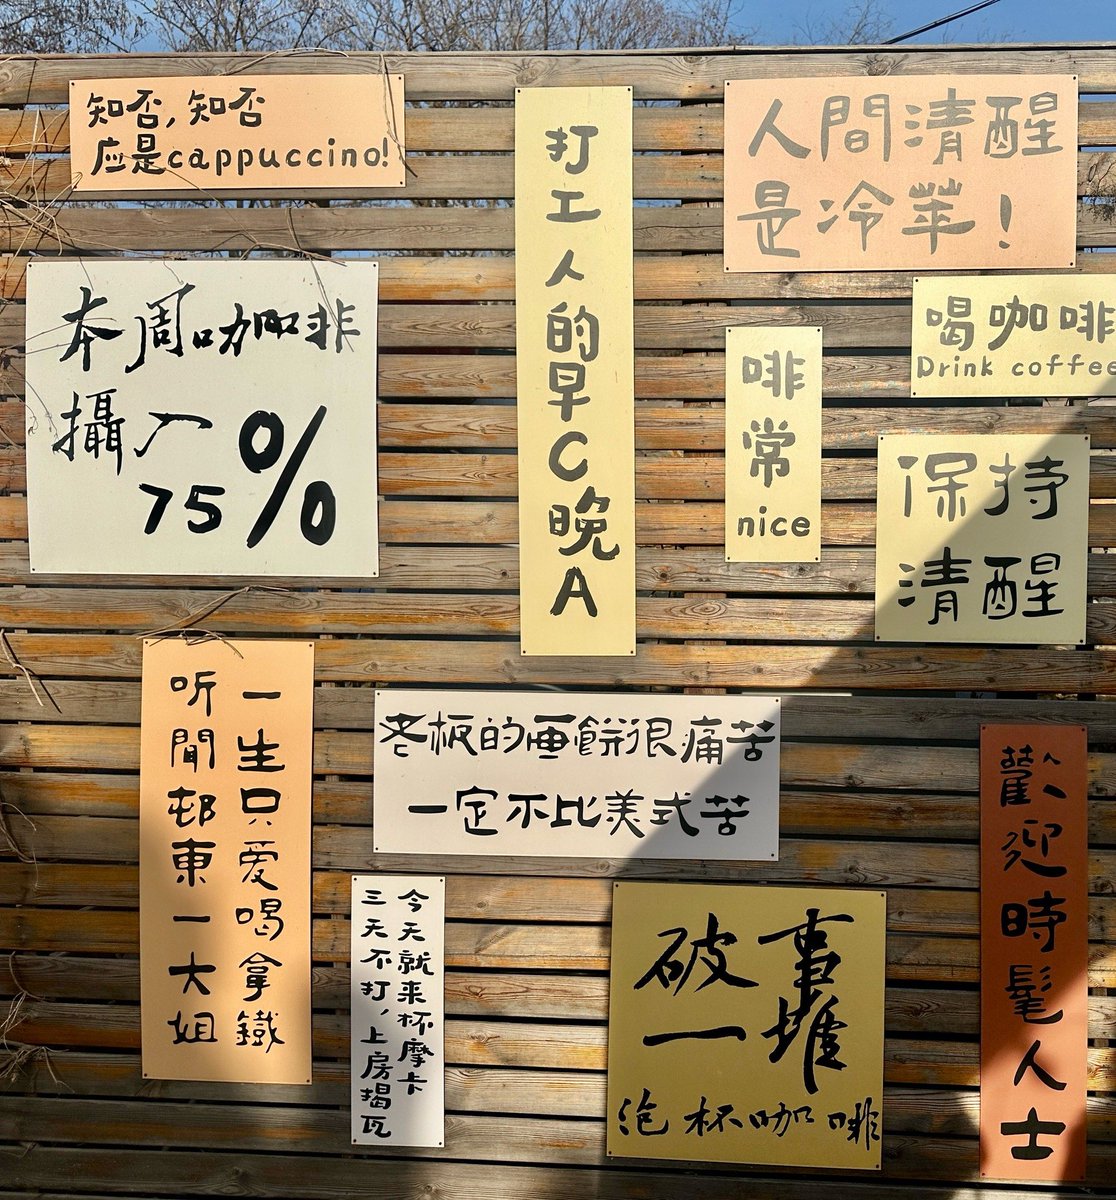 知否,知否
应是cappuccino!
打工人的早C晚A
人間清醒
是冷萃!
本周咖啡
攝入
75%
喝咖啡
Drink coffee
啡常nice
保持
清醒
听聞邨東一大姐
一生只爱喝拿鐵
老板的画餅很痛苦
一定不比美式苦
三天不打,上房揭瓦
今天就来杯摩卡
破事
一堆
泡杯咖啡
歡迎時髦人士